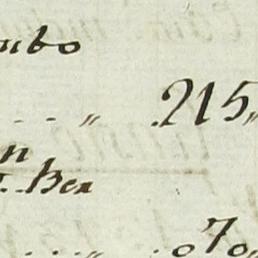 mbo
. . . „ 215„
n
. Ben
. . . . „ . 070„